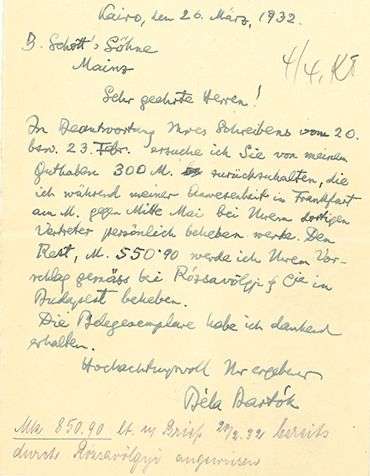 Kairo, den 26. März, 1932.
B. Schott's Söhne
Mainz
4/4. Kř
Sehr geehrte Herren!
In Beantwortung Ihres Schreibens vom 20.
bzw. 23. Febr. ersuche ich Sie von meinem
Guthaben 300 M. zurückzuhalten, die
ich während meiner Anwesenheit in Frankfurt
am M. gegen Mitte Mai bei Ihrem dortigen
Vertreter persönlich beheben werde. Den
Rest, M. 550·90 werde ich Ihrem Vor-
schlag gemäss bei Rózsavölgyi & Cie in
Budapest beheben.
Die Belegexemplare habe ich dankend
erhalten.
Hochachtungsvoll Ihr ergebener
Béla Bartók
Mk 850.90 lt. u. Brief 20/2. 32 bereits
durch Rózsavölgyi angewiesen